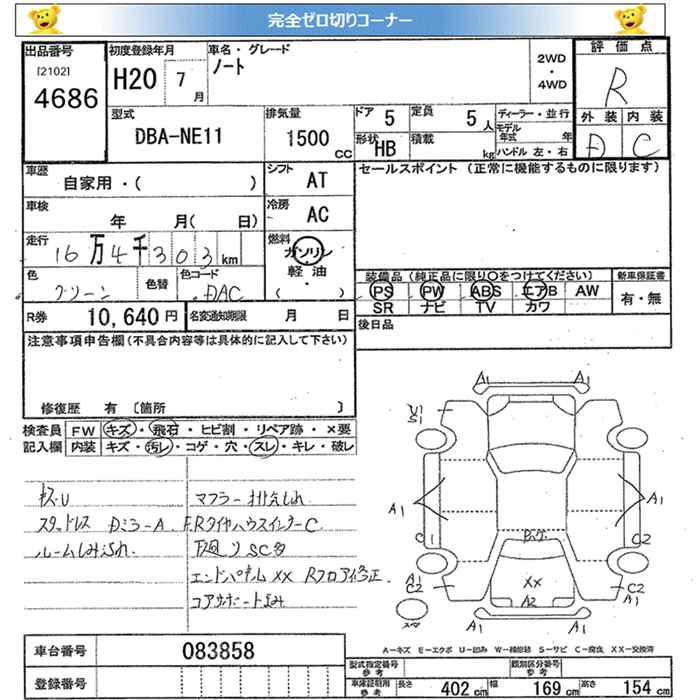 完全ゼロ切りコーナー
出品番号
[2102]
4686
初度登録年月
H20 7月
車名・グレード
ノート
2WD
・
4WD
評価点
R
外装 内装
D C
型式
DBA-NE11
排気量
1500 cc
ドア 5
定員 5人
形状 HB
積載 kg
ディーラー・並行
モデル年式 年
ハンドル 左・右
車歴
自家用・( )
シフト AT
車検
年 月( 日)
冷房 AC
走行
16万4千303km
燃料
ガソリン
・
軽・油
( )
色
グリーン
色替
色コード
DAC
R券 10,640円
名変通知期限 月 日
セールスポイント (正常に機能するものに限ります)
装備品(純正品に限り○をつけてください)
PS PW ABS エアB AW
SR ナビ TV カワ
新車保証書
有・無
後日品
注意事項申告欄(不具合内容等は具体的に記入して下さい)
修復歴 有〔箇所 〕
検査員記入欄
FW キズ・飛石・ヒビ割・リペア跡・×要
内装 キズ・汚レ・コゲ・穴・スレ・キレ・破レ
キズU
スタッドレス Dミラ-A
ルームしみよごれ
マフラー排気もれ
F.RタイヤハウスインナーC
下廻りSC多
エンドパネルXX Rフロア修正
コアサポート歪み
A1 A1
U1
S1
A1 A1
C1 C2
Bガラ
XX
A2
A1
C2
C2
A1
スペア
A1 A1
A-キズ E-エクボ U-凹み W-補修跡 S-サビ C-腐食 XX-交換済
車台番号 083858
登録番号
型式指定番号参考
類別区分番号参考
車庫証明用参考 長さ 402cm 幅 169cm 高さ 154cm